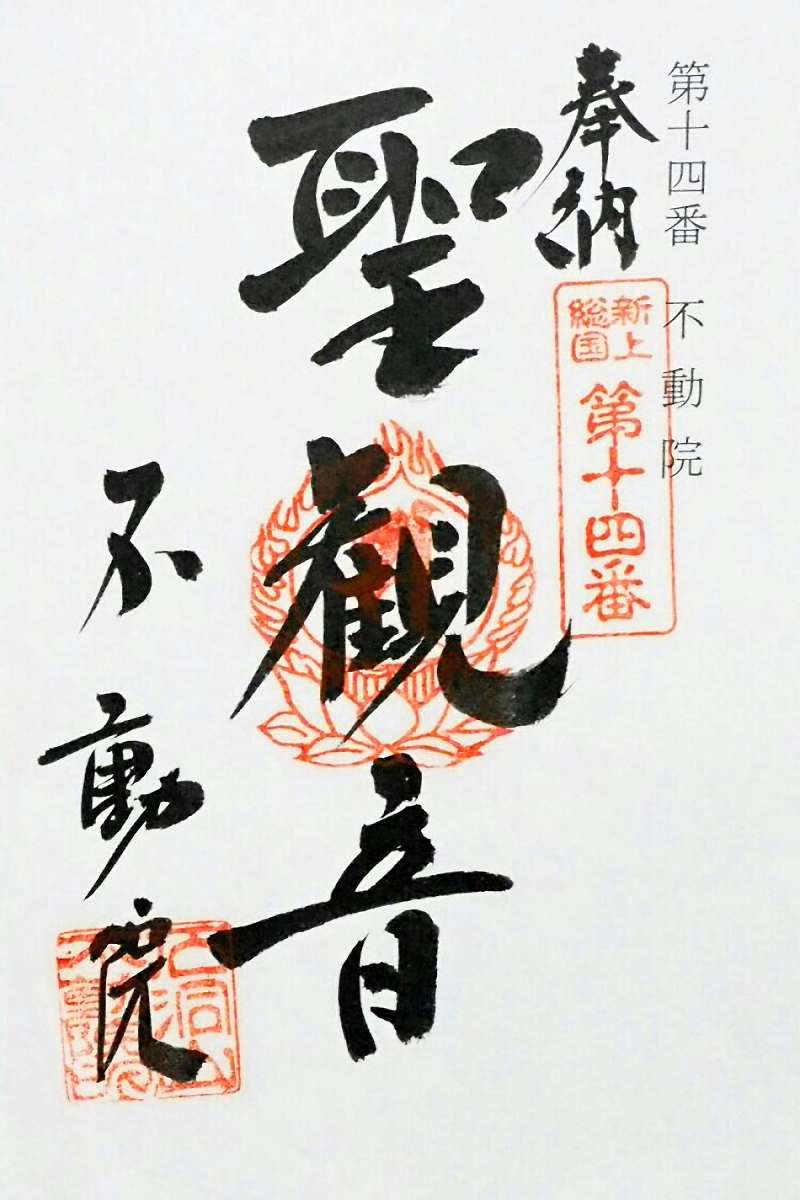 第十四番 不動院
奉納
新上
総国
第十四番
聖観音
不動院